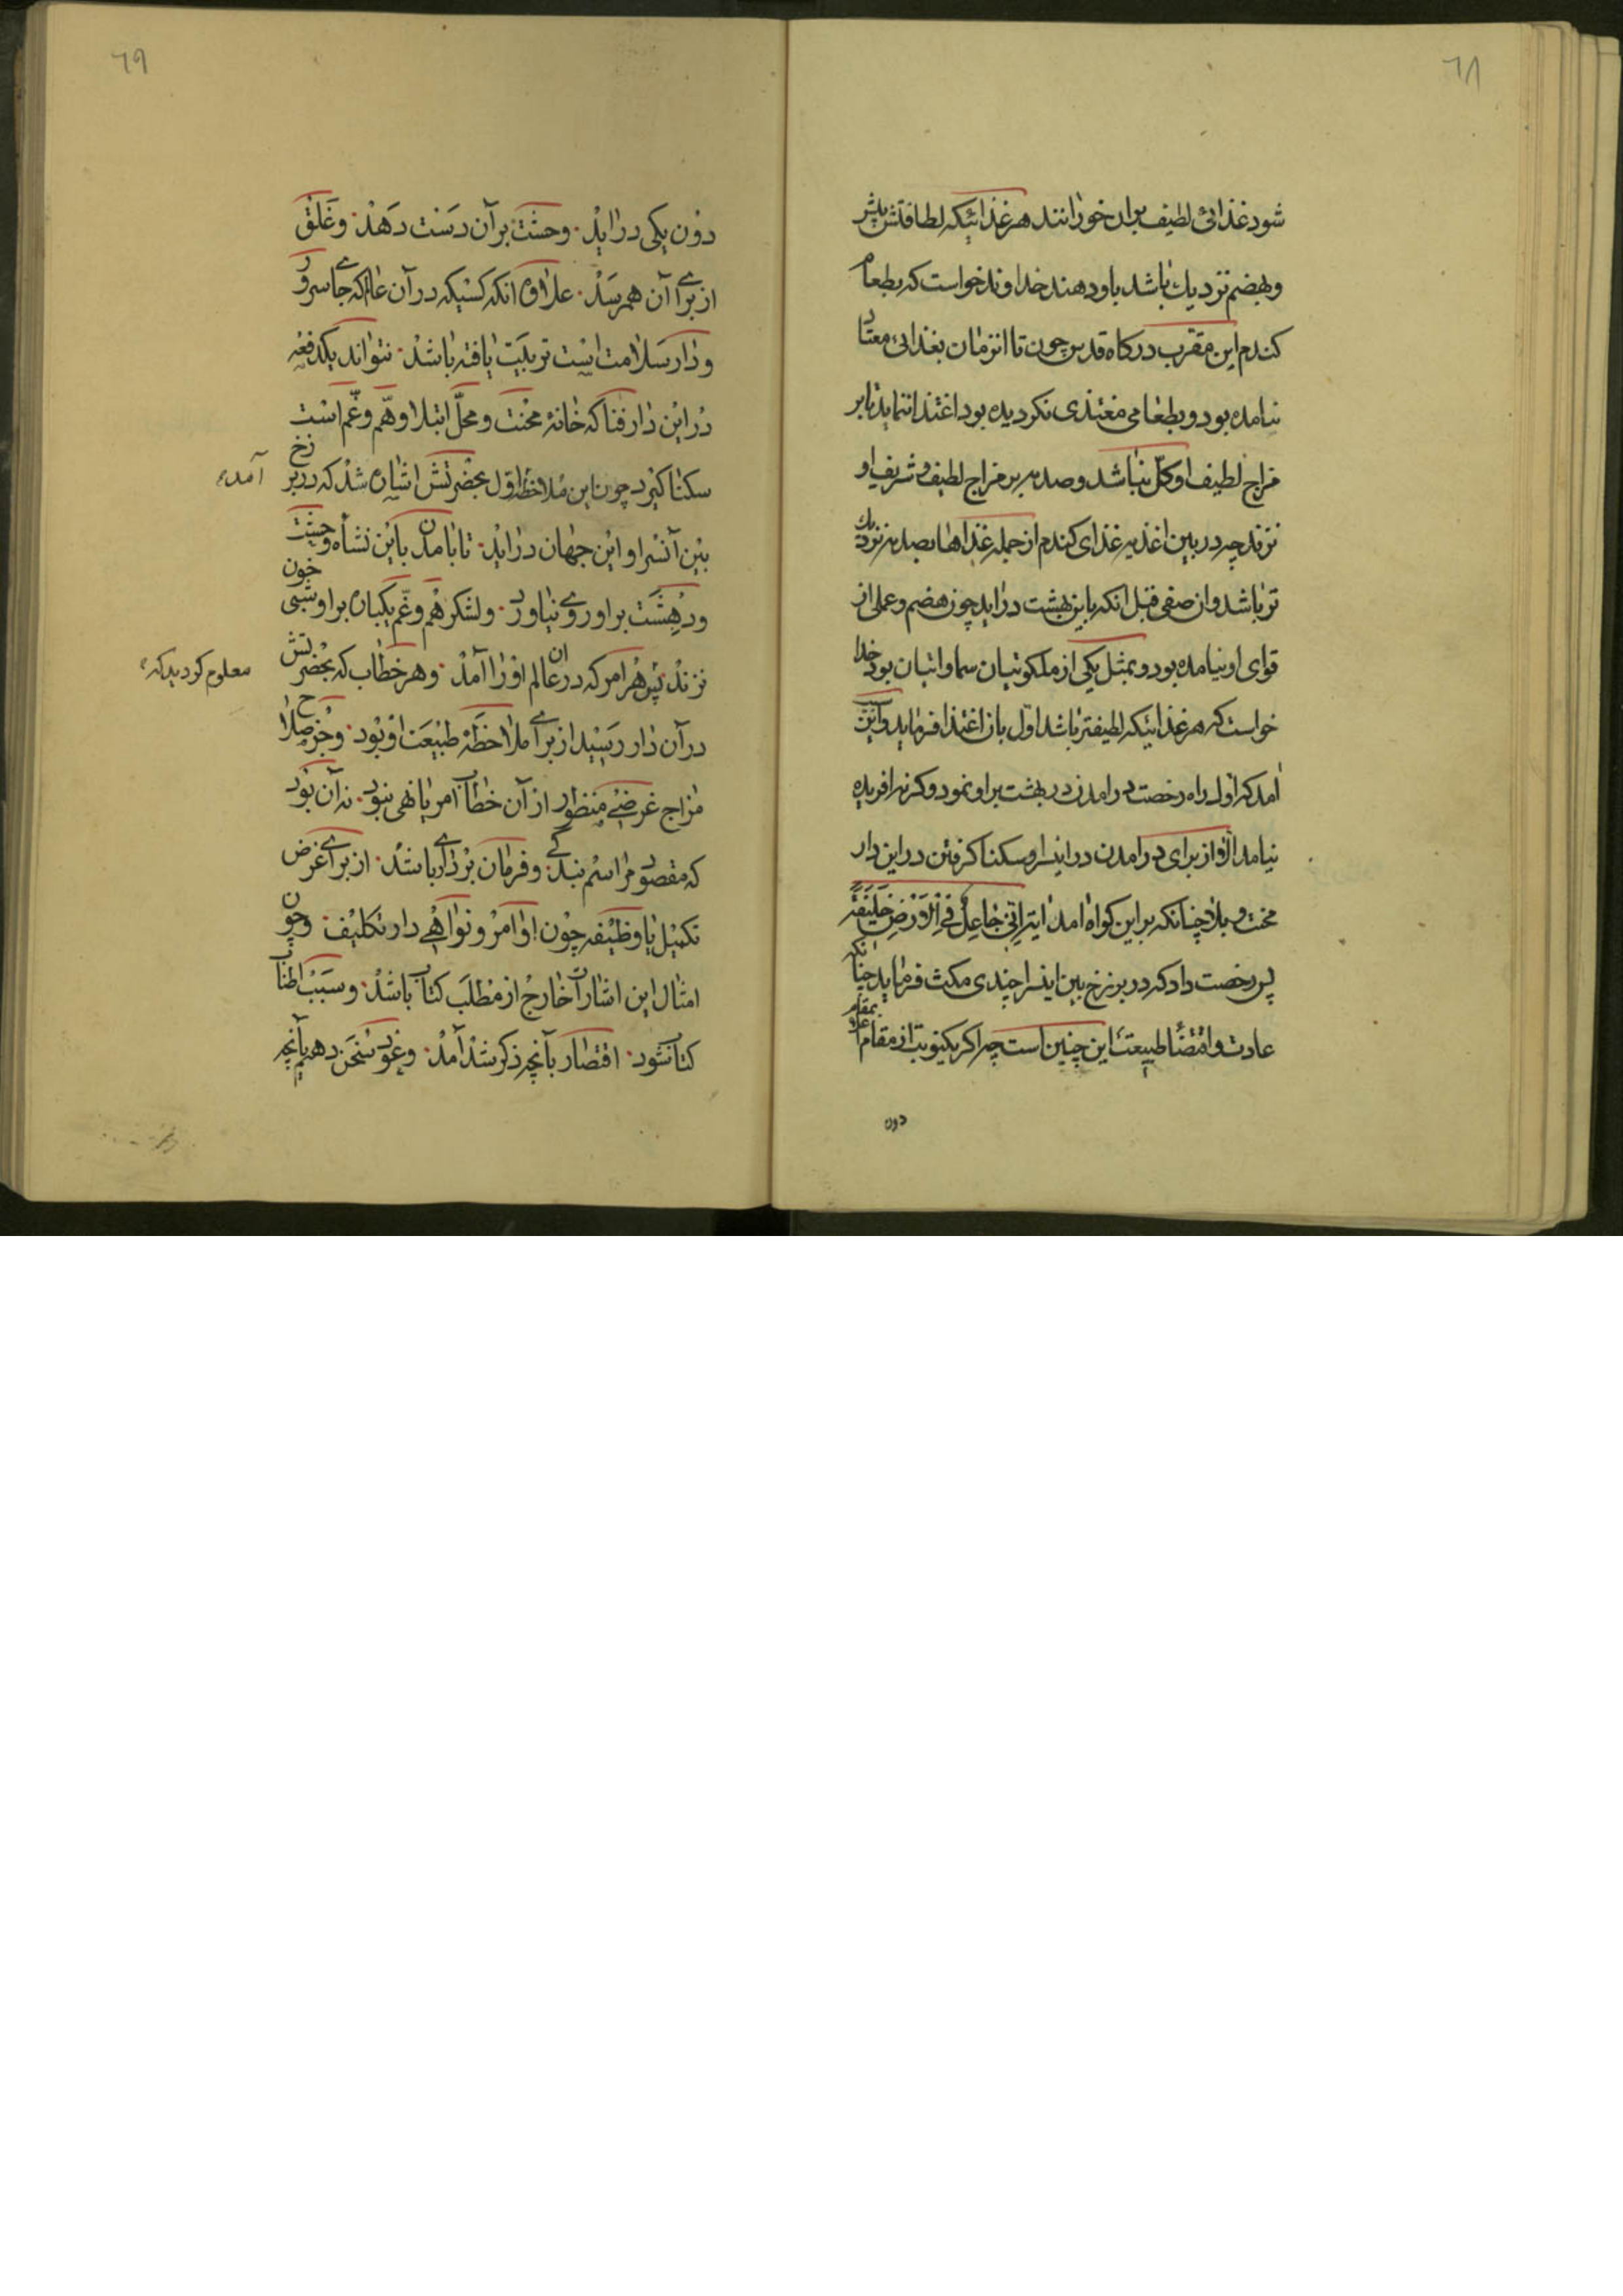 ٦٨
شود غذائی لطیف براو خورانند هر غذائیکه لطافتش بیشتر
وبهضم نزدیك باشد باو دهند خداوند خواست که بطعام
کندم این مقرب درکاه قدس چون تا انزمان بغذائی معتاد
نیامده بود و بطعامی مغتذی نکردیده بود اغتذا نماید تا بر
مزاج لطیف او کلّ نباشد وصدمه بر مزاج لطیف وشریف او
نزند چه در بین اغذیه غذای کندم از جمله غذاها بصدمه نزدیك
تر باشد وان صفی قبل انکه باین بهشت دراید چون هضم وعملی از
قوای او نیامده بود و بمثل یکی از ملکوتیان سماواتیان بود خدا
خواست که هر غذائیکه لطیفتر باشد اوّل بان اغتذا فرماید واین
امد که اول راه رخصت درامدن در بهشت براو نمود وکرنه افریده
نیامد الّا از برای درامدن در اینسرا وسکنا کرفتن در این دار
محنت و بلا چنانکه بر این کواه امد ایه اِنّی جٰاعِلٌ فِی الْاَرْضِ خَلیٖفَةً
پس رخصت داد که در برزخ بین اینسرا چندی مکث فرماید چنانکه
عادت واقتضٰا طبیعت این چنین است چه اکر یکنوبت از مقام اعلا بمقام
دون
٦٩
دوُن یکی درٰایدْ. وحشت برآن دَست دَهدْ. وغَلَق
از برٰای آن همرسَدْ. علٰاوه انکه کسیکه در آن عٰالم که جٰای سرور
ودٰار سَلٰامت است تربیَت یٰافته بٰاشدْ. نتوٰاند یکدفعه
دْر ایْن دٰار فنٰا که خٰانهٔ محْنت و محلّ ابتلٰا وهّم وغّم است
سکنٰا کیرد چون این مُلاحظه اوّل بحضرتش اشٰاره شدْ که در برزخ
آمد
بیْن آنسْرا و ایْن جهٰان درٰایدْ. تا بٰامدن بایْن نشأه وحشت
ودهِشَت بر او روی نیٰاورد. ولشکر هَم وغّم یکبٰاره بر او شبی خون
نزندْ. پس هْر امر که در ان عٰالم اوْرٰا آمدْ. وهر خطٰاب که بحْضرتش
معلوم کردید که
در آن دٰار رسَیْد از برٰای ملٰاحظَهٔ طبیْعَت اوْ بوُد. وجُز صلٰاح
مزٰاج غرضی منظوُر از آن خطٰاب امر یٰا نهی نبوُد. نه آن بوُد
که مقصوُد مرٰاسْم بندکی وفرمٰان برْدٰاری بٰاشدْ. از برٰای غرض
تکمیْل یٰا وظیْفه چوُن اوٰامرْ ونوٰاهْی دٰار تکلیْف. وچون
امثٰال این اشٰارٰات خٰارجْ از مَطْلَب کتٰاب بٰاشدْ. وسَبَبْ اطنٰاب
کتٰاب شود. اقتصٰار بآنچه ذکر شدْ آمدْ. وعَوُد سُخَن دهیم بآنچه